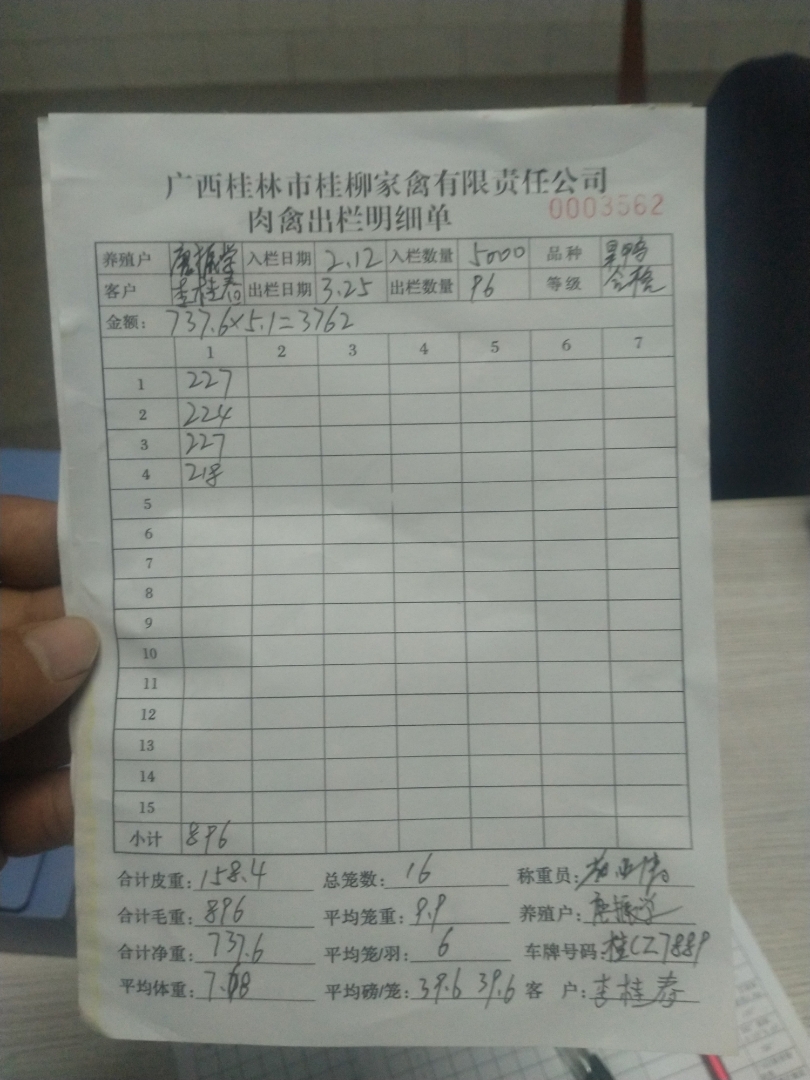 广西桂林市桂柳家禽有限责任公司
肉禽出栏明细单 0003562
养殖户 唐振学 入栏日期 2.12 入栏数量 5000 品种
客户 李桂春 出栏日期 3.25 出栏数量 96 等级 合格
金额: 737.6×5.1=3762
1 2 3 4 5 6 7
1 227
2 224
3 227
4 218
5
6
7
8
9
10
11
12
13
14
15
小计 896
合计皮重: 158.4 总笼数: 16 称重员:
合计毛重: 896 平均笼重: 9.9 养殖户: 唐振学
合计净重: 737.6 平均笼/羽: 6 车牌号码: 桂CZ7889
平均体重: 7.68 平均磅/笼: 39.6 39.6 客 户: 李桂春